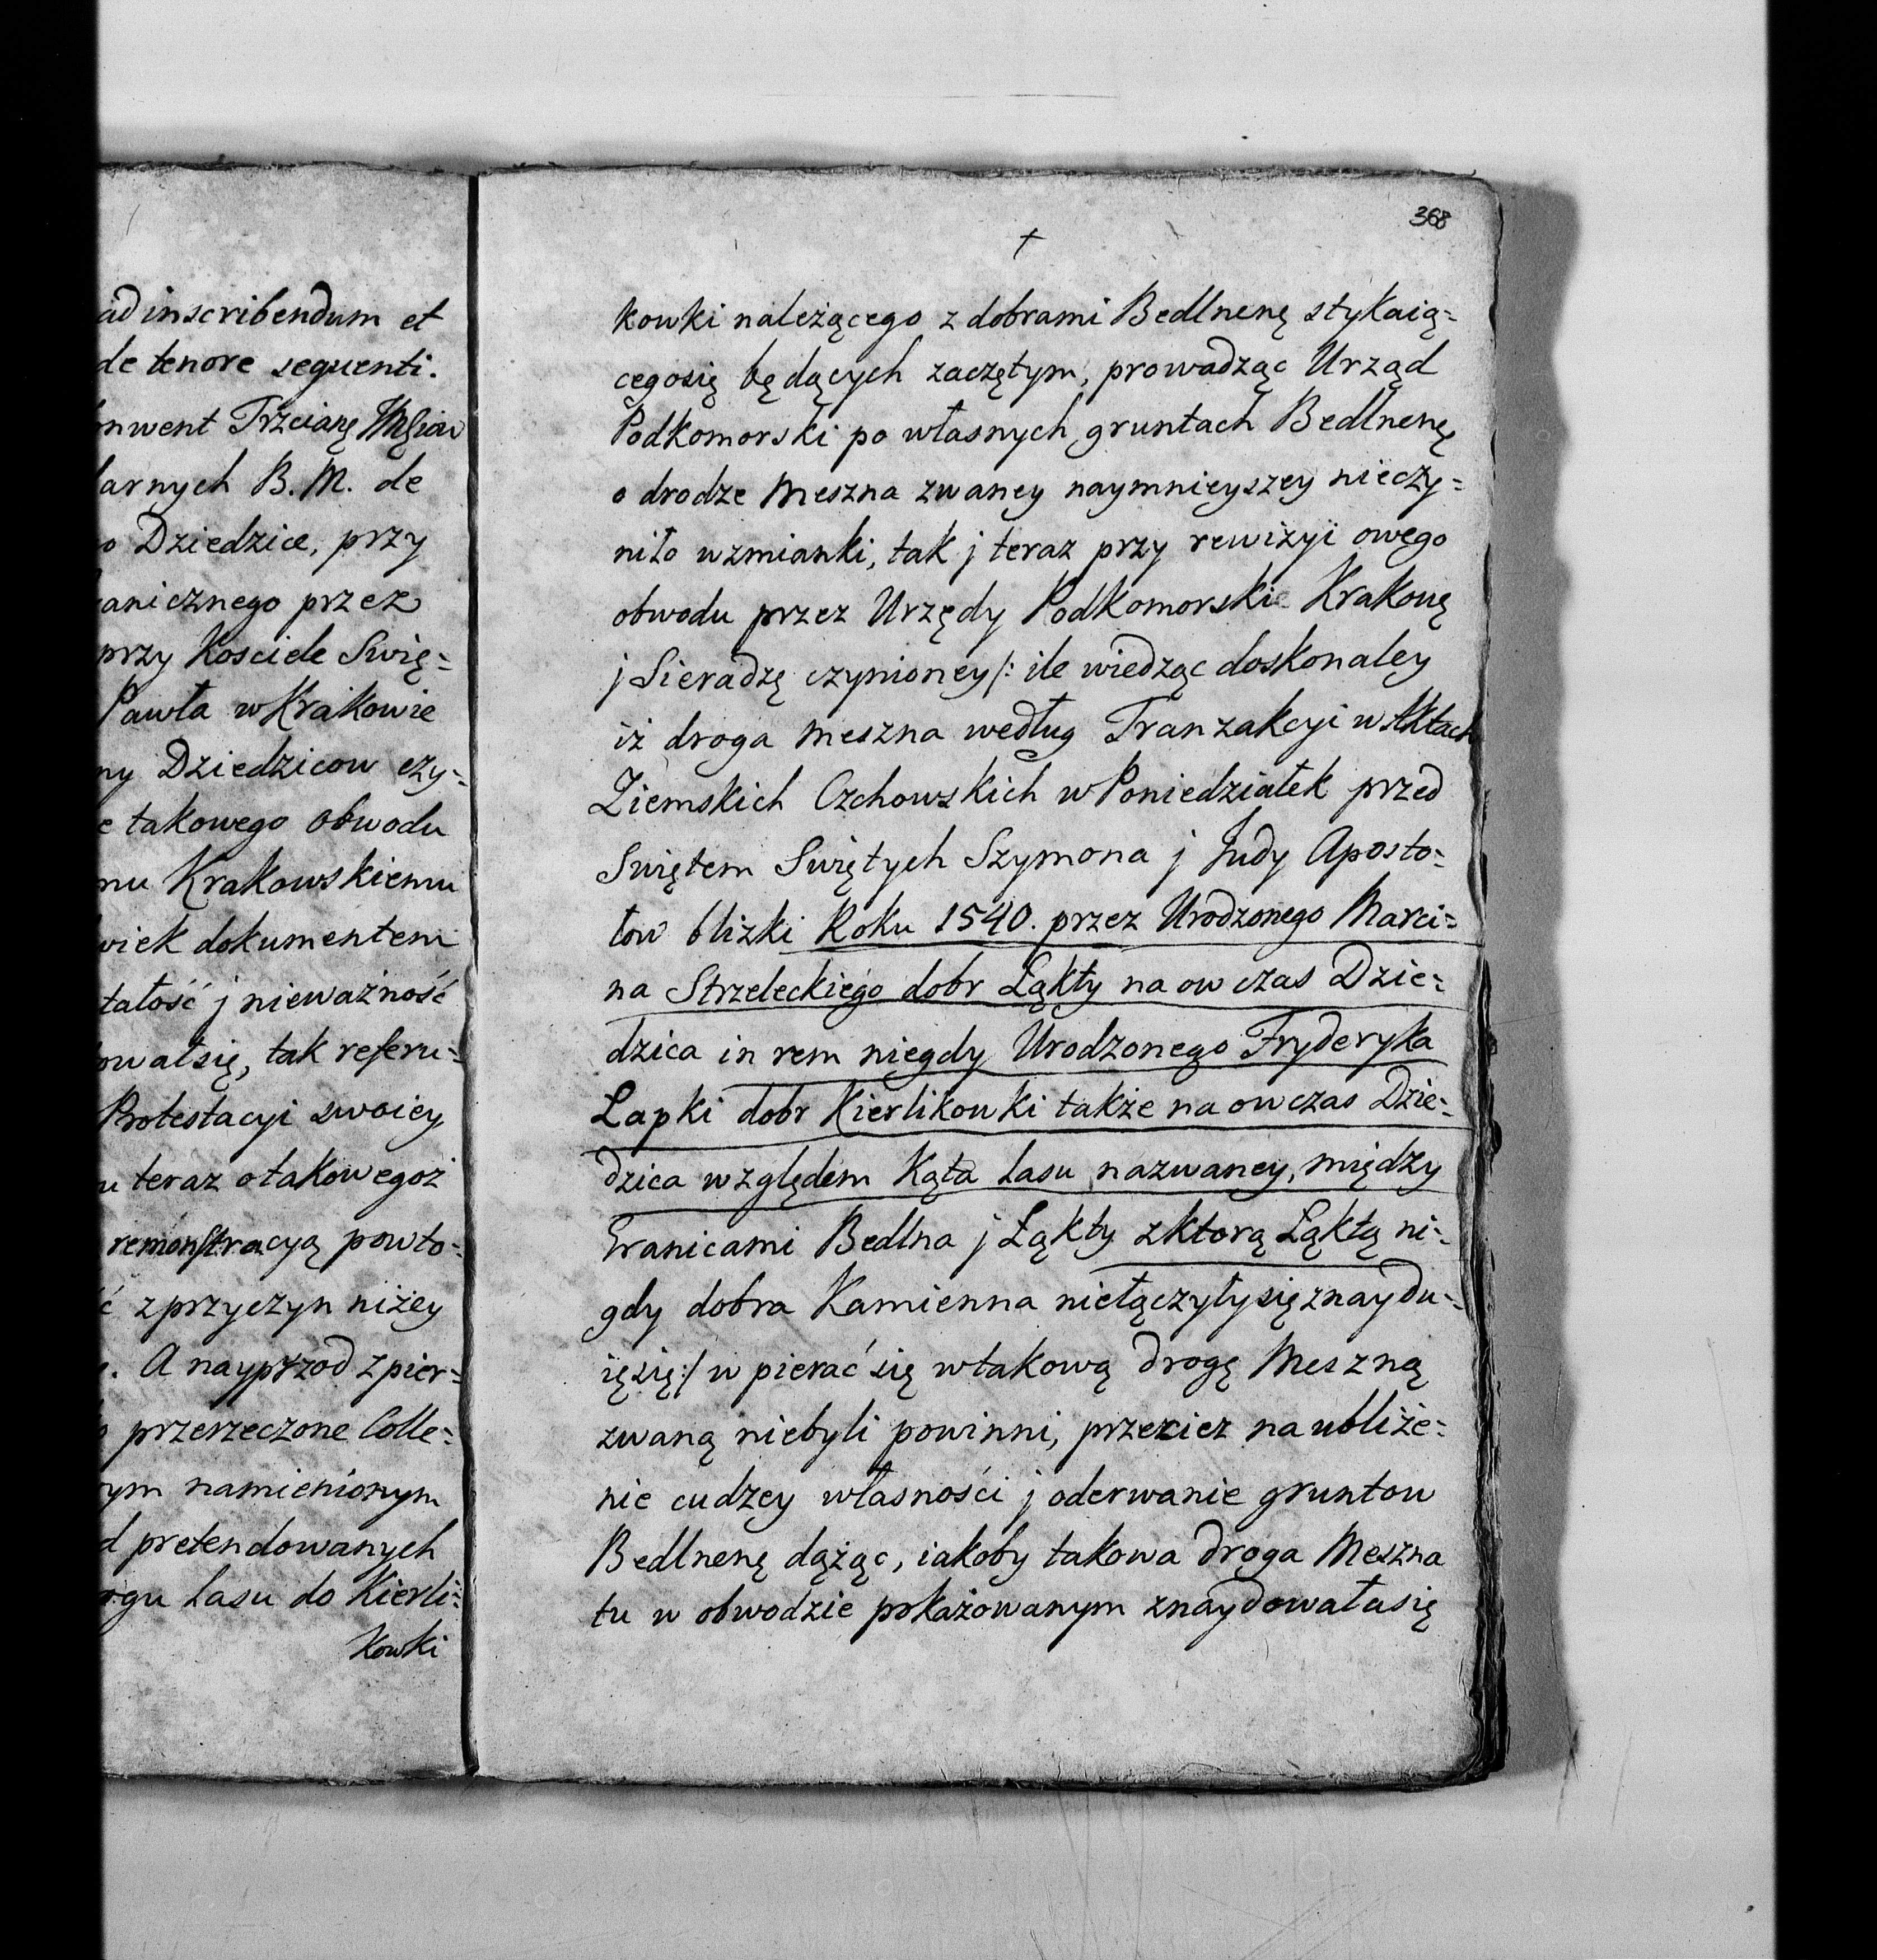 ad inscribendum et
de tenore sequenti.
nwent Trzcianę
larnych B. M. de
o Dziedzice, przy
anicznego przez
przy Kosciele Swię=
Pawła w Krakowie
ny Dziedzicow czy=
e takowego obwodu
mu Krakowskiemu
wiek dokumentem
tałość j nieważność
owałsię, tak referu=
Protestacyi swoiey
u teraz o takowegoż
remonstracyą powto=
ć z przyczyn niżey
. A nayprzod z pier=
przerzeczone Colle=
ym namienionym
d pretendowanych
ogu Lasu do Kierli=
kowki
368
kowki należącego z dobrami Bedlnenę stykaią=
cegosię będących zaczętym, prowadząc Urząd
Podkomorski po własnych gruntach Bedlnenę
o drodze Meszna zwaney naymnieyszey nieczy=
niło wzmianki, tak j teraz przy rewizyi owego
obwodu przez Urzędy Podkomorskie Krakowę
j Sieradzę czynioney /: ile wiedząc doskonaley
iż droga meszna według Tranzakcyi w Aktach
Ziemskich Czchowskich w Poniedziałek przed
Swiętem Swiętych Szymona j Judy Aposto=
łow blizki Roku 1540. przez Urodzonego Marci=
na Strzeleckiego dobr Łąkty na ow czas Dzie=
dzica in rem niegdy Urodzonego Fryderyka
Lapki dobr Kierlikowki także na ow czas Dzie=
dzica względem Kąta Lasu nazwaney, między
Granicami Bedlna j Łąkty z ktorą Łąktą ni=
gdy dobra Kamienna niełączyłysię znaydu=
ięsię :/ w pierać się w takową drogę Meszną
zwaną niebyli powinni, przeciez na ubliże=
nie cudzey własności j oderwanie gruntow
Bedlnenę dążąc, iakoby takowa droga Meszna
tu w obwodzie pokażowanym znaydowałasię